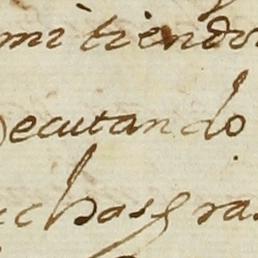 mitiendo
ecutando
chas gra